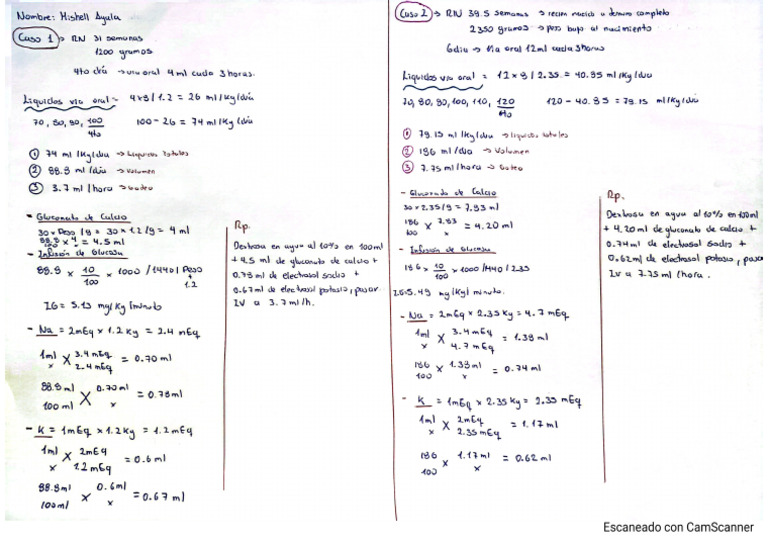 Nombre: Mishell Ayala
Caso 1 → RN 31 semanas
1200 gramos
4to día → vía oral 4 ml cada 3 horas.
Liquidos vía oral = 4x8/1.2 = 26 ml/Kg/día
70, 80, 90, 100 100 - 26 = 74 ml/Kg/día
4to
① 74 ml/Kg/día → Liquidos totales
② 88.8 ml/día → Volumen
③ 3.7 ml/hora → Goteo
- Gluconato de Calcio
30 x Peso /9 = 30 x 1.2 /9 = 4 ml
88.8 x 4 = 4.5 ml
100
- Infusión de Glucosa
88.8 x 10 x 1000 / 1440 / Peso
100 1.2
IG = 5.13 mg/Kg/minuto
- Na = 2mEq x 1.2 Kg = 2.4 mEq
1ml X 3.4 mEq = 0.70 ml
x 2.4 mEq
88.8 ml X 0.70 ml = 0.78ml
100 ml x
- K = 1mEq x 1.2 Kg = 1.2 mEq
1ml X 2mEq = 0.6 ml
x 1.2 mEq
88.8ml x 0.6ml = 0.67 ml
100ml x
Rp.
Dextrosa en agua al 10% en 100ml
+ 4.5 ml de gluconato de calcio +
0.78 ml de electrosol sodio +
0.67ml de electrosol potasio, pasar
IV a 3.7 ml/h.
Caso 2 → RN 39.5 semanas → recien nacido a termino completo
2350 gramos → peso bajo al nacimiento
6 día → Vía oral 12ml cada 3 horas
Liquidos vía oral = 12 x 8 / 2.35 = 40.85 ml/Kg/día
70, 80, 90, 100, 110, 120 120 - 40.85 = 79.15 ml/Kg/día
6to
① 79.15 ml/Kg/día → liquidos totales
② 186 ml/día → Volumen
③ 7.75 ml/hora → Goteo
- Gluconato de Calcio
30 x 2.35/9 = 7.83 ml
186 x 7.83 = 4.20 ml
100 x
- Infusión de Glucosa
186 x 10 x 1000 /1440 / 2.35
100
IG: 5.49 mg/Kg/ minuto.
- Na = 2mEq x 2.35 Kg = 4.7 mEq
1ml X 3.4 mEq = 1.38 ml
x 4.7 mEq
186 x 1.38ml = 0.74 ml
100 x
- K = 1mEq x 2.35 Kg = 2.35 mEq
1ml X 2mEq = 1.17 ml
x 2.35 mEq
186 x 1.17 ml = 0.62 ml
100 x
Rp.
Dextrosa en agua al 10% en 100ml
+ 4.20 ml de gluconato de calcio +
0.74 ml de electrosol sodio +
0.62 ml de electrosol potasio, pasar
IV a 7.75 ml /hora.
Escaneado con CamScanner